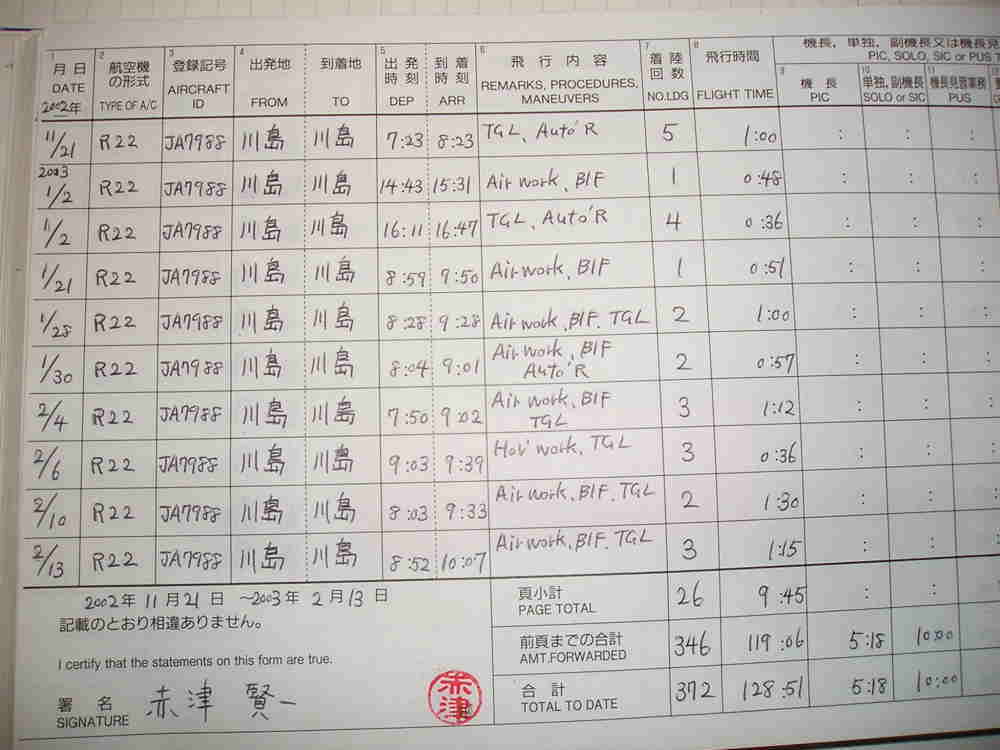 1 2 3 4 5 6 7 8 機長，単独，副機長又は機長見
月日 航空機の形式 登録記号 出発地 到着地 出発時刻 到着時刻 飛行内容 着陸回数 飛行時間 PIC, SOLO, SIC or PUS T
9 機長 10 単独, 副機長 11 機長見習業務
DATE TYPE OF A/C AIRCRAFT ID FROM TO DEP ARR REMARKS, PROCEDURES, MANEUVERS NO.LDG FLIGHT TIME PIC SOLO or SIC PUS
2002年
11/21 R22 JA7988 川島 川島 7:23 8:23 TGL、Auto'R 5 1:00 : : :
2003
1/2 R22 JA7988 川島 川島 14:43 15:31 Air work、BIF 1 0:48 : : :
1/2 R22 JA7988 川島 川島 16:11 16:47 TGL、Auto'R 4 0:36 : : :
1/21 R22 JA7988 川島 川島 8:59 9:50 Air work、BIF 1 0:51 : : :
1/28 R22 JA7988 川島 川島 8:28 9:28 Air work、BIF、TGL 2 1:00 : : :
1/30 R22 JA7988 川島 川島 8:04 9:01 Air work、BIF 2 0:57 : : :
Auto'R
2/4 R22 JA7988 川島 川島 7:50 9:02 Air work、BIF 3 1:12 : : :
TGL
2/6 R22 JA7988 川島 川島 9:03 9:39 Hov' work、TGL 3 0:36 : : :
2/10 R22 JA7988 川島 川島 8:03 9:33 Air work、BIF、TGL 2 1:30 : : :
2/13 R22 JA7988 川島 川島 8:52 10:07 Air work、BIF、TGL 3 1:15 : : :
2002年 11月 21日 ～2003年 2月 13日
記載のとおり相違ありません。
I certify that the statements on this form are true.
署名 赤津 賢一
SIGNATURE
赤津
頁小計 26 9:45 : :
PAGE TOTAL
前頁までの合計 346 119:06 5:18 10:00
AMT.FORWARDED
合計 372 128:51 5:18 10:00
TOTAL TO DATE